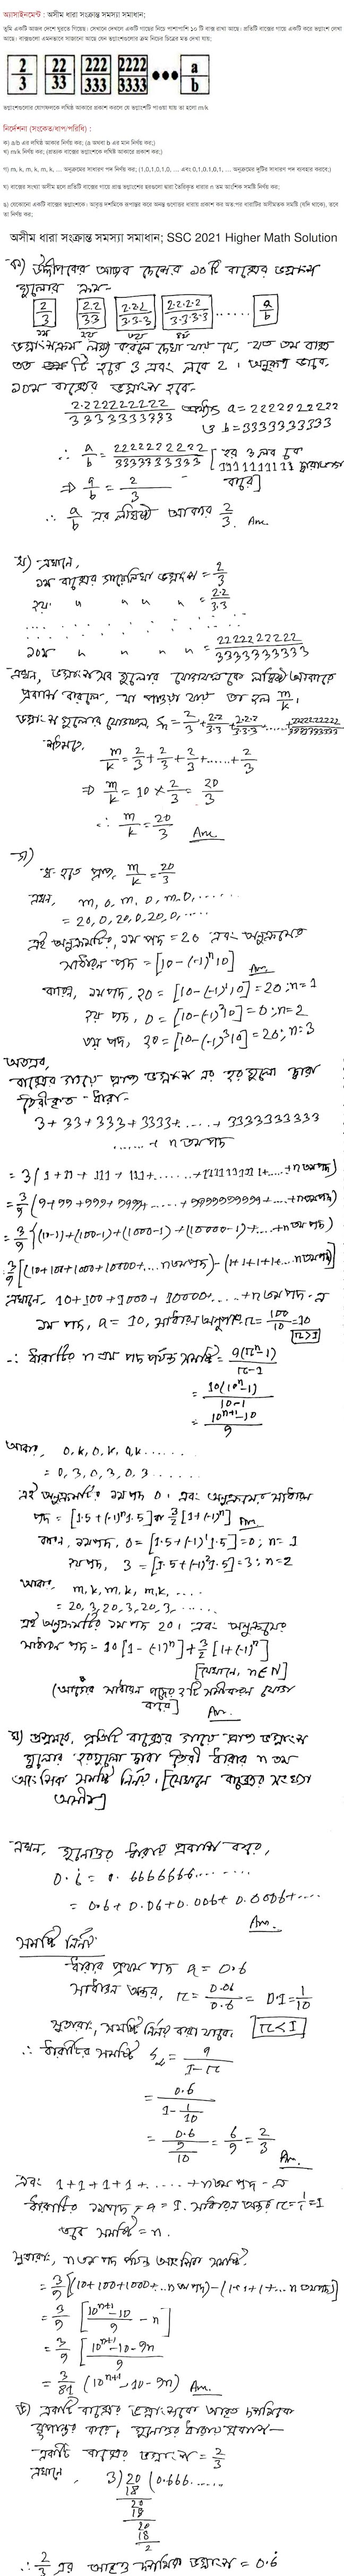 অ্যাসাইনমেন্ট : অসীম ধারা সংক্রান্ত সমস্যা সমাধান;
তুমি একটি আজব দেশে ঘুরতে গিয়েছ। সেখানে দেখলে একটি গাছের নিচে পাশাপাশি ১০ টি বাক্স রাখা আছে। প্রতিটি বাক্সের গায়ে একটি করে ভগ্নাংশ লেখা
আছে। বাক্সগুলো এমনভাবে সাজানো আছে যেন ভগ্নাংশগুলোর ক্রম নিচের চিত্রের মত দেখা যায়:
2/3 22/33 222/333 2222/3333 ••• a/b
ভগ্নাংশগুলোর যোগফলকে লঘিষ্ঠ আকারে প্রকাশ করলে যে ভগ্নাংশটি পাওয়া যায় তা হলো m/k
নির্দেশনা (সংকেত/ধাপ/পরিধি) :
ক) a/b এর লঘিষ্ঠ আকার নির্ণয় কর; (a অথবা b এর মান নির্ণয় কর;)
খ) m/k নির্ণয় কর; (প্রত্যেক বাক্সের ভগ্নাংশকে লঘিষ্ঠ আকারে প্রকাশ কর;)
গ) m, k, m, k, m, k, … অনুক্রমের সাধারণ পদ নির্ণয় কর; (1,0,1,0,1,0, … এবং 0,1,0,1,0,1, … অনুক্রম দুটির সাধারণ পদ ব্যবহার করবে;)
ঘ) বাক্সের সংখ্যা অসীম হলে প্রতিটি বাক্সের গায়ে প্রাপ্ত ভগ্নাংশের হরগুলো দ্বারা তৈরিকৃত ধারার n তম আংশিক সমষ্টি নির্ণয় কর;
ঙ) যেকোনো একটি বাক্সের ভগ্নাংশকে। আবৃত্ত দশমিকে রূপান্তর করে অনন্ত গুণোত্তর ধারায় প্রকাশ কর অত:পর ধারাটির অসীমতক সমষ্টি (যদি থাকে), তবে
তা নির্ণয় কর;
অসীম ধারা সংক্রান্ত সমস্যা সমাধান; SSC 2021 Higher Math Solution
ক) উদ্দীপকের আজব দেশের ১০টি বাক্সের ভগ্নাংশ
গুলোর ক্রম-
2/3 2·2/3·3 2·2·2/3·3·3 2·2·2·2/3·3·3·3 ..... a/b
১ম ২য় ৩য় ৪র্থ
ভগ্নাংশগুলো লক্ষ্য করলে দেখা যায় যে, যত তম বাক্স
তত টি হরে 3 এবং লবে 2। অনুরূপ ভাবে,
১০ম বাক্সের ভগ্নাংশ হবে-
2·222222222/3333333333 অর্থাৎ a = 2222222222
ও b = 3333333333
∴ a/b = 2222222222/3333333333 [হর ও লব কে
1111111111 দ্বারা ভাগ
করে]
⇒ a/b = 2/3
∴ a/b এর লঘিষ্ঠ আকার 2/3. Ans
খ) এখানে,
১ম বাক্সের গায়ে লিখা ভগ্নাংশ = 2/3
২য় " " " " = 2·2/3·3
১০ম " " " " = 2222222222/3333333333
এখন, ভগ্নাংশ গুলোর যোগফলকে লঘিষ্ঠ আকারে
প্রকাশ করলে, যা পাওয়া যায় তা হল m/k।
ভগ্নাংশ গুলোর যোগফল, Sn = 2/3 + 2·2/3·3 + 2·2·2/3·3·3 + ..... + 2222222222/3333333333
m/k = 2/3 + 2/3 + 2/3 + ...... + 2/3
⇒ m/k = 10 × 2/3 = 20/3
∴ m/k = 20/3 Ans
গ)
খ হতে প্রাপ্ত, m/k = 20/3
এখন, m, o, m, o, m, o, ......
= 20, 0, 20, 0, 20, 0, .....
এই অনুক্রমটির, ১ম পদ = 20 এবং অনুক্রমের
সাধারন পদ = [10-(-1)ⁿ10] Ans
কারন, ১ম পদ, 20 = [10-(-1)¹10] = 20; n=1
২য় পদ, 0 = [10-(-1)²10] = 0; n=2
৩য় পদ, 20 = [10-(-1)³10] = 20; n=3
অতএব,
বাক্সের গায়ে প্রাপ্ত ভগ্নাংশ এর হর গুলো দ্বারা
তৈরীকৃত ধারা-
3+33+333+3333+.....+ 3333333333
....... + n তম পদ
= 3(1+11+111+1111+......+1111111111+....+n তম পদ)
= 3/9 (9+99+999+9999+......+9999999999+....+n তম পদ)
= 3/9 {(10-1)+(100-1)+(1000-1)+(10000-1)+....+n তম পদ}
= 3/9 [(10+100+1000+10000+....n তম পদ)-(1+1+1+1+...n তম পদ)]
এখানে- 10+100+1000+10000+.....+n তম পদ-এ
১ম পদ, a = 10, সাধারন অনুপাত r = 100/10 = 10
r>1
∴ ধারাটির n তম পদ পর্যন্ত সমষ্টি = a(rⁿ-1)/r-1
= 10(10ⁿ-1)/10-1
= 10ⁿ⁺¹-10/9
আবার, 0, k, 0, k, 0, k.......
= 0, 3, 0, 3, 0, 3......
এই অনুক্রমটির ১ম পদ 0। এবং অনুক্রমের সাধারন
পদ = [1.5+(-1)ⁿ1.5] বা 3/2[1+(-1)ⁿ] Ans
কারন, ১ম পদ, 0 = [1.5+(-1)¹1.5] = 0; n=1
২য় পদ, 3 = [1.5+(-1)²1.5] = 3; n=2
আবার, m, k, m, k, m, k, ....
= 20, 3, 20, 3, 20, 3, ......
এই অনুক্রমটির ১ম পদ 20। এবং অনুক্রমের
সাধারন পদ = 10[1-(-1)ⁿ]+3/2[1+(-1)ⁿ]
[যেখানে, n∈N]
(আগের সাধারন পদের ২টি সমীকরন যোগ
করে) Ans.
ঘ) প্রশ্নমতে, প্রতিটি বাক্সের গায়ে প্রাপ্ত ভগ্নাংশ
গুলোর হরগুলো দ্বারা তৈরী ধারার n তম
আংশিক সমষ্টি নির্ণয়। [যেখানে বাক্সের সংখ্যা
অসীম]
এখন, গুনোত্তর ধারায় প্রকাশ করে,
0.6̇ = 0.6666666.......
= 0.6+0.06+0.006+0.0006+....
Ans.
সমষ্টি নির্নয়
ধারার প্রথম পদ a = 0.6
সাধারন অন্তর, r = 0.06/0.6 = 0.1 = 1/10
সুতরাং, সমষ্টি নির্নয় করা যাবে. r<1
∴ ধারাটির সমষ্টি S∞ = a/1-r
= 0.6/1-1/10
= 0.6/9/10 = 6/9 = 2/3 Ans.
এবং 1+1+1+1+.....+n তম পদ-এ
ধারাটির ১ম পদ a = 1. সাধারন অন্তর r = 1/1 = 1
তবে সমষ্টি = n.
সুতরাং, n তম পদ পর্যন্ত আংশিক সমষ্টি.
= 3/9 [(10+100+1000+..n তম পদ)-(1+1+1+...n তম পদ)]
= 3/9 [10ⁿ⁺¹-10/9 - n]
= 3/9 [10ⁿ⁺¹-10-9n/9]
= 3/81 (10ⁿ⁺¹-10-9n) Ans.
ঙ) একটি বাক্সের ভগ্নাংশকে আবৃত দশমিকে
রূপান্তর করে, গুনোত্তর ধারায় প্রকাশ-
একটি বাক্সের ভগ্নাংশ = 2/3
এখানে, 3)20(0.666......
18
20
18
20
18
2
∴ 2/3 এর আবৃত দশমিক ভগ্নাংশ = 0.6̇